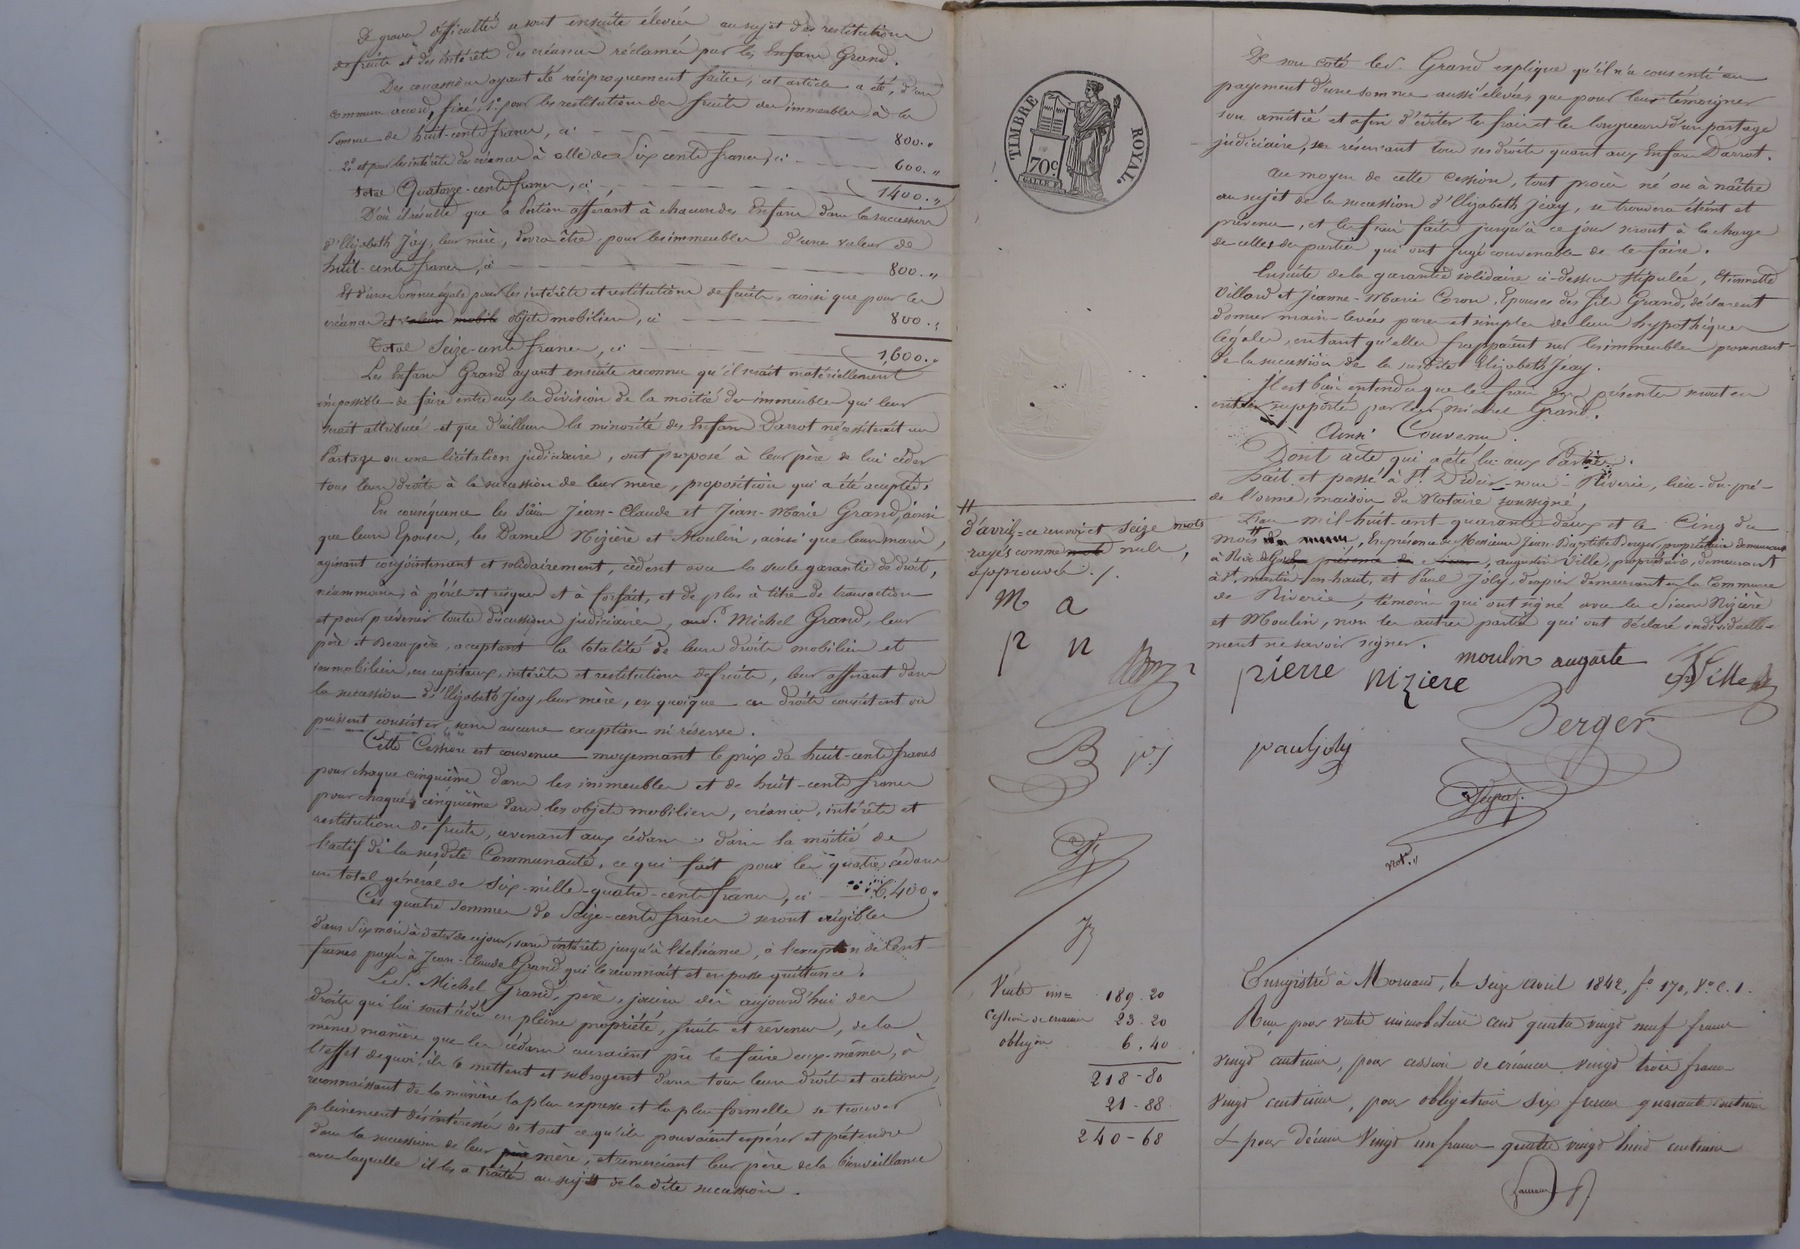 De graves difficultés se sont ensuite élevées au sujet des restitutions
de fruits et des intérêts des créances réclamés par les Enfans Grand.
Des concessions ayant été réciproquement faites, cet article a été, d'un
commun accord, fixé, 1° pour les restitutions des fruits des immeubles à la
somme de huit-cents francs, ci 800. "
2° et pour les intérêts des créances à celle de Six cents francs, ci 600. "
total Quatorze-cents francs, ci 1400. "
D'où il résulte que la Portion afférant à chacun des Enfans dans la succession
d'Elizabeth Jéay, leur mère, devra être, pour les immeubles d'une valeur de
huit-cents francs, ci 800. "
Et d'une somme égale pour les intérêts et restitutions de fruits, ainsi que pour les
créances et valeurs mobils objets mobiliers, ci 800. "
Total Seize-cents francs, ci 1,600. "
Les Enfans Grand ayant ensuite reconnu qu'il serait matériellement
impossible de faire entre eux la division de la moitié des immeubles qui leur
serait attribuée et que d'ailleurs la minorité des Enfans Darrot nécessiterait un
Partage ou une licitation judiciaire, ont proposé à leur père de lui céder
tous leurs droits à la succession de leur mère, proposition qui a été acceptée.
En conséquence les Sieurs Jean-Claude et Jean-Marie Grand, ainsi
que leurs Epouses, les Dames Nizière et Moulin, ainsi que leurs maris,
agissant conjointement et solidairement, cèdent avec la seule garantie de droit,
néanmoins à périls et risques et à forfait, et de plus à titre de transaction
et pour prévenir toute discussion judiciaire, au dit Michel Grand, leur
père et Beau-père, acceptant la totalité de leurs droits mobiliers et
immobiliers, en capitaux, intérêts et restitutions de fruits, leur afférant dans
la succession d'Elizabeth Jéay, leur mère, en quoique ces droits consistent ou
puissent consister, sans aucune exception ni réserve.
Cette Cession est convenue moyennant le prix de huit-cents francs
pour chaque cinquième dans les immeubles et de huit-cents francs
pour chaque cinquième dans les objets mobiliers, créances, intérêts et
restitutions de fruits, revenant aux cédans dans la moitié de
l'actif de la susdite Communauté, ce qui fait pour les quatre cédans
un total général de Six-mille-quatre-cents francs, ci 6,400. "
Ces quatre sommes de Seize-cents francs seront exigibles
dans Six mois à dater de ce jour, sans intérêts jusqu'à l'échéance, à l'exception de Cent
francs payés à Jean-Claude Grand qui le reconnaît et en passe quittance.
Le d. Michel Grand, père, jouira dès aujourd'hui des
droits qui lui sont cédés en pleine propriété, fruits et revenus, de la
même manière que les cédans auraient pu le faire eux-mêmes, à
l'effet de quoi ils le mettent et subrogent dans tous leurs droits et actions,
reconnaissant de la manière la plus expresse et la plus formelle se trouver
pleinement désintéressés de tout ce qu'ils pouvaient espérer et prétendre
dans la succession de leur père mère, et remerciant leur père de la bienveillance
avec laquelle il les a traités au sujet de la dite succession.
TIMBRE ROYAL.
70c
De son côté le d. Grand explique qu'il n'a consenti au
payement d'une somme aussi élevée que pour leur témoigner
son amitié et afin d'éviter les frais et les longueurs d'un partage
judiciaire, se réservant tous ses droits quant aux Enfans Darrot.
Au moyen de cette cession, tout procès né ou à naître
au sujet de la succession d'Elizabeth Jéay, se trouvera éteint et
prévenu, et les frais faits jusqu'à ce jour seront à la charge
de celles des parties qui ont jugé convenable de les faire.
Ensuite de la garantie solidaire ci-dessus stipulée, Etiennette
Villard et Jeanne-Marie Coron, Epouses des fils Grand, déclarent
donner main-levées pures et simples de leurs hypothèques
légales, en tant qu'elles frappaient sur les immeubles provenant
de la succession de la susdite Elizabeth Jéay.
Il est bien entendu que les frais des présentes seront en
entier supportés par led. Michel Grand.
Ainsi Convenu.
Dont acte qui a été lu aux Parties.
Fait et passé à St. Didier-sous-Riverie, lieu-du-pré-
de l'orme, maison du Notaire soussigné,
L'an mil-huit-cent quarante-deux et le Cinq du
mois En présence de Messieurs Jean-Baptiste Berger, propriétaire demeurant
à présence de Augustin Ville, propriétaire, demeurant
à St. martin-en-haut, et Paul Joly, demeurant en la Commune
de Riverie, témoins qui ont signé avec les Sieurs Nizière
et Moulin, non les autres parties qui ont déclaré individuelle-
ment ne savoir signer.
d'avril = ce renvoi et seize mots
rayés comme mots nuls,
approuvés ./.
M a
p n
B p.j
pierre nizière moulin auguste Ville
Berger
pauljoly
not.
Vente im= 189.20
Cession de créances 23.20
obligon 6.40
218-80
21-88
240-68
Enregistré à Mornant, le Seize avril 1842, f° 170, V° C. 1.
Reçu pour vente immobilière cent quatre vingt neuf francs
vingt centimes, pour cession de créances vingt trois francs
vingt centimes, pour obligation six francs quarante centimes
& pour décime Vingt un francs quatre vingt huit centimes